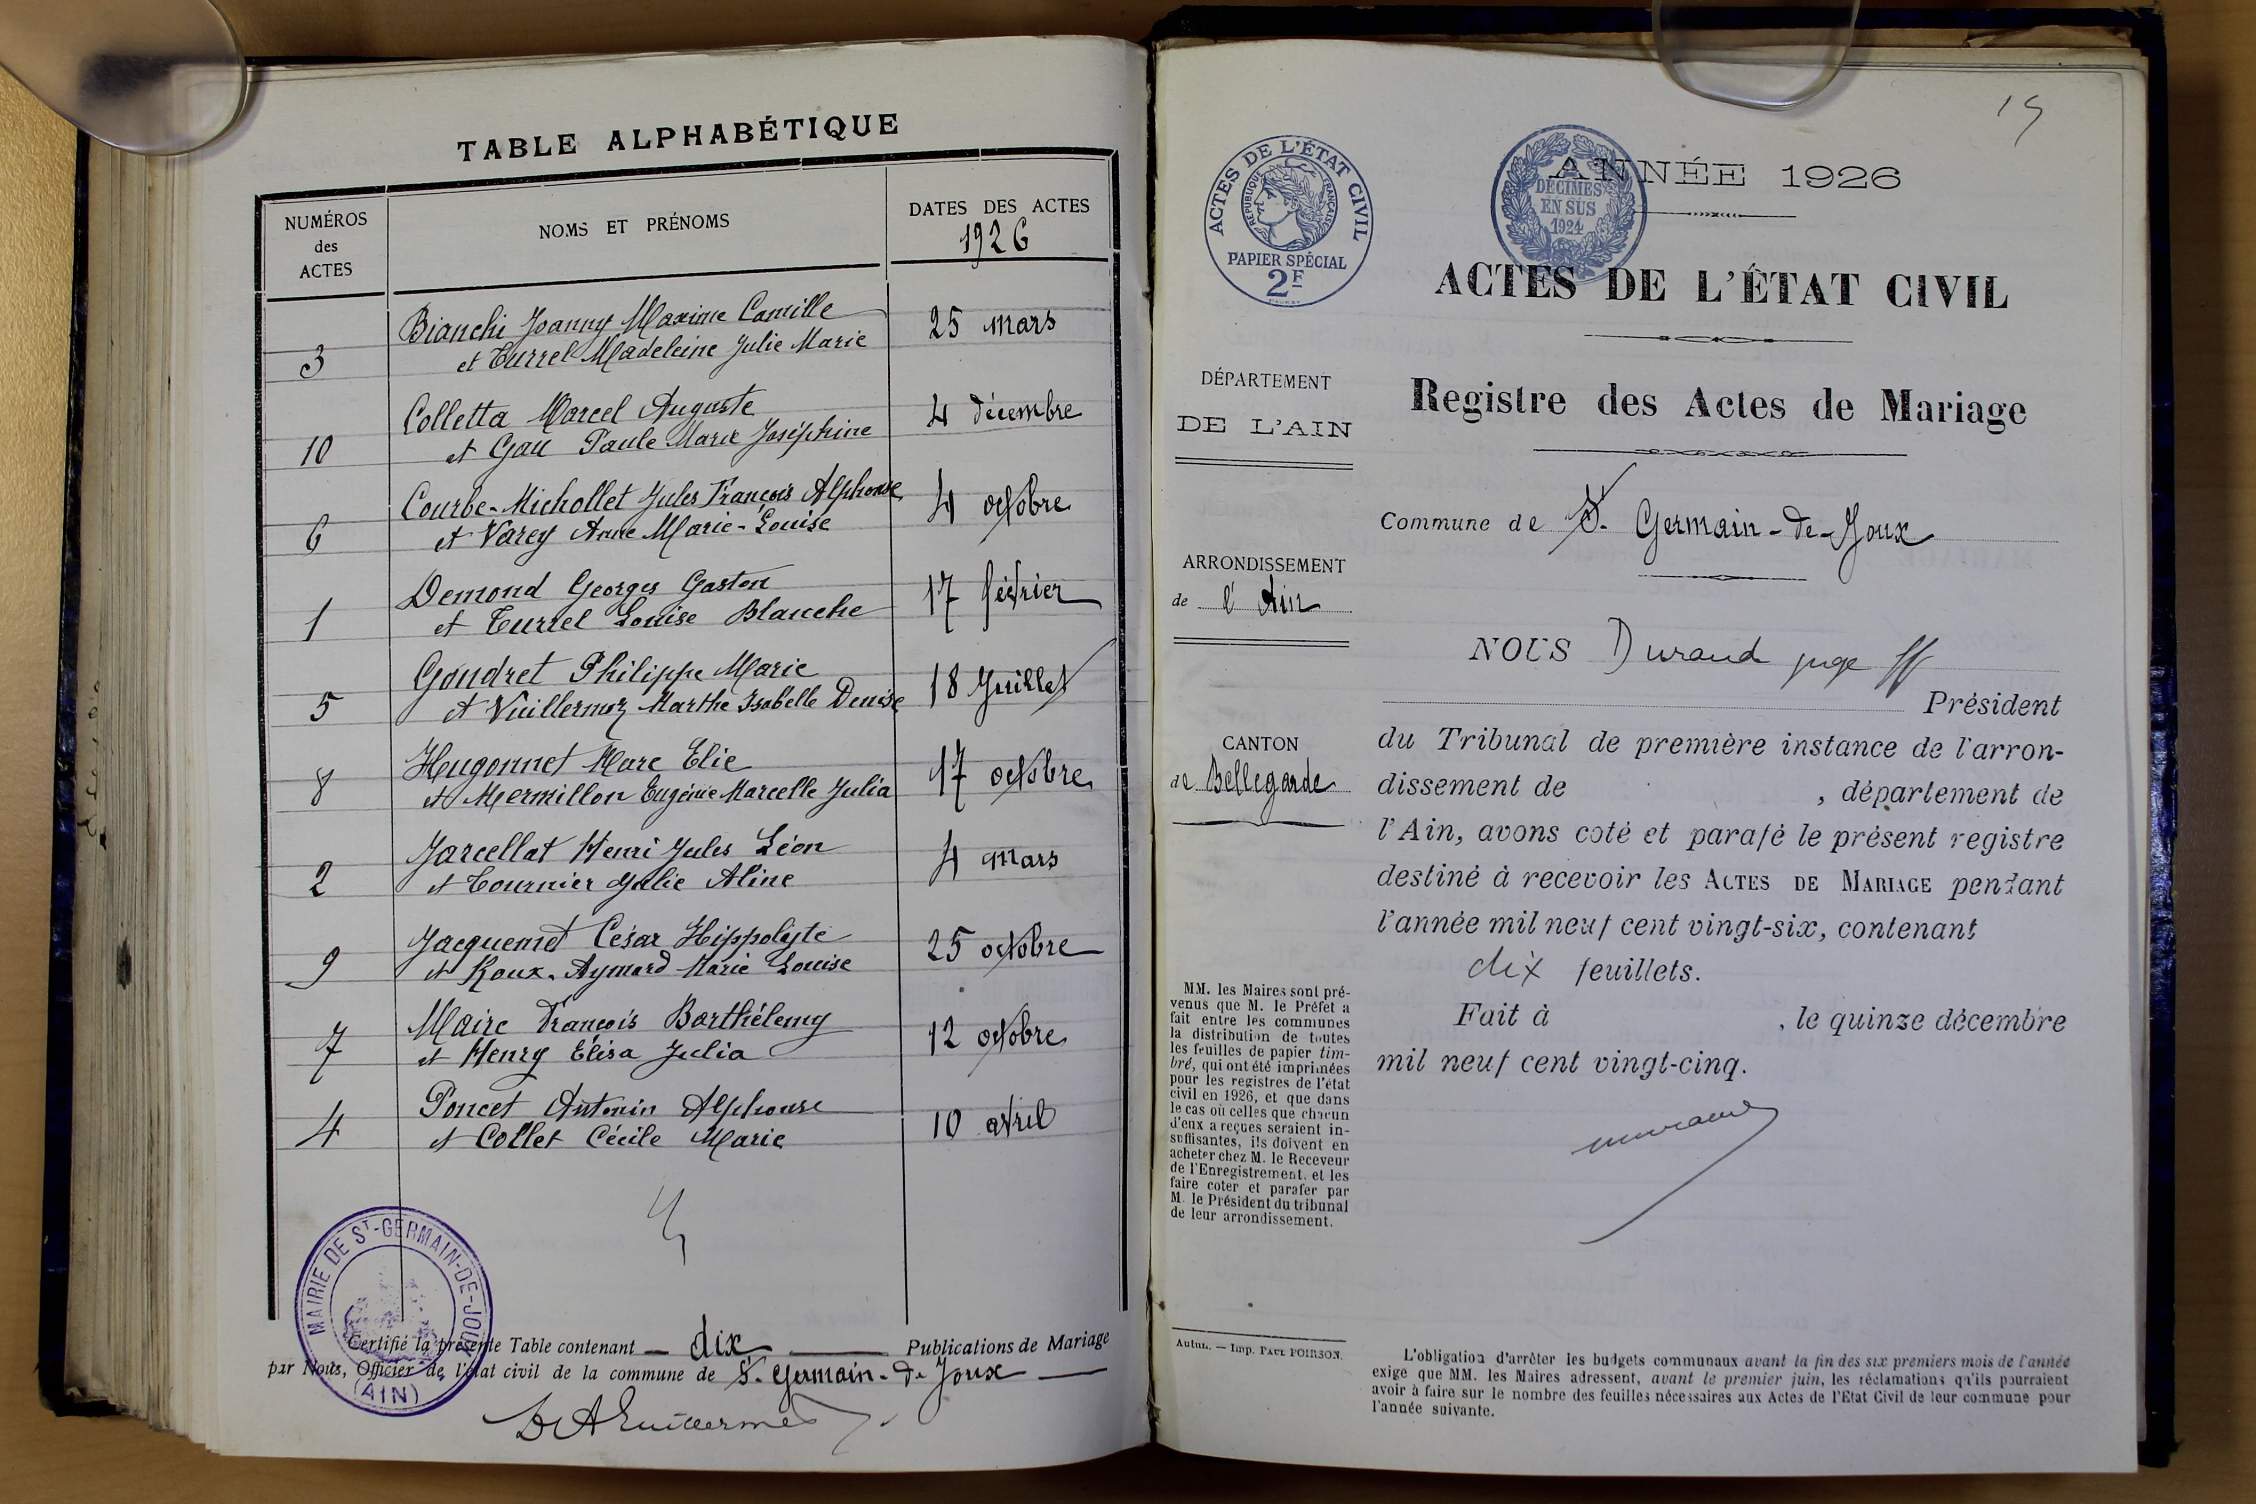 TABLE ALPHABÉTIQUE
NUMÉROS
des
ACTES
NOMS ET PRÉNOMS
DATES DES ACTES
1926
3
Bianchi Joanny Maxime Camille
et Turrel Madeleine Julie Marie
25 mars
10
Colletta Marcel Auguste
et Gau Paule Marie Joséphine
4 décembre
6
Courbe-Michollet Jules François Alphonse
et Varey Anne Marie-Louise
4 octobre
1
Demond Georges Gaston
et Turrel Louise Blanche
17 février
5
Goudret Philippe Marie
et Vuillermoz Marthe Isabelle Denise
18 Juillet
8
Hugonnet Marc Elie
et Mermillon Eugénie Marcelle Julia
17 octobre
2
Jarcellat Henri Jules Léon
et Tournier Julie Aline
4 mars
9
Jacquemet César Hippolyte
et Roux-Aymard Marie Louise
25 octobre
7
Maire François Barthélemy
et Henry Élisa Julia
12 octobre
4
Poncet Antonin Alphonse
et Collet Cécile Marie
10 avril
MAIRIE DE ST-GERMAIN-DE-JOUX
(AIN)
Certifié la présente Table contenant dix Publications de Mariage
par Nous, Officier de l'état civil de la commune de St. Germain-de-Joux
15
ACTES DE L'ÉTAT CIVIL
RÉPUBLIQUE FRANÇAISE
PAPIER SPÉCIAL
2F
DÉCIMES
EN SUS
1924
ANNÉE 1926
ACTES DE L'ÉTAT CIVIL
Registre des Actes de Mariage
DÉPARTEMENT
DE L'AIN
Commune de St. Germain-de-Joux
ARRONDISSEMENT
de l'Ain
NOUS Durand juge ff
Président
du Tribunal de première instance de l'arron-
dissement de , département de
l'Ain, avons coté et parafé le présent registre
destiné à recevoir les ACTES DE MARIAGE pendant
l'année mil neuf cent vingt-six, contenant
dix feuillets.
Fait à , le quinze décembre
mil neuf cent vingt-cinq.
CANTON
de Bellegarde
MM. les Maires sont pré-
venus que M. le Préfet a
fait entre les communes
la distribution de toutes
les feuilles de papier tim-
bré, qui ont été imprimées
pour les registres de l'état
civil en 1926, et que dans
le cas où celles que chacun
d'eux a reçues seraient in-
suffisantes, ils doivent en
acheter chez M. le Receveur
de l'Enregistrement, et les
faire coter et parafer par
M. le Président du tribunal
de leur arrondissement.
Autun. — Imp. PAUL POIRSON.
L'obligation d'arrêter les budgets communaux avant la fin des six premiers mois de l'année
exige que MM. les Maires adressent, avant le premier juin, les réclamations qu'ils pourraient
avoir à faire sur le nombre des feuilles nécessaires aux Actes de l'Etat Civil de leur commune pour
l'année suivante.